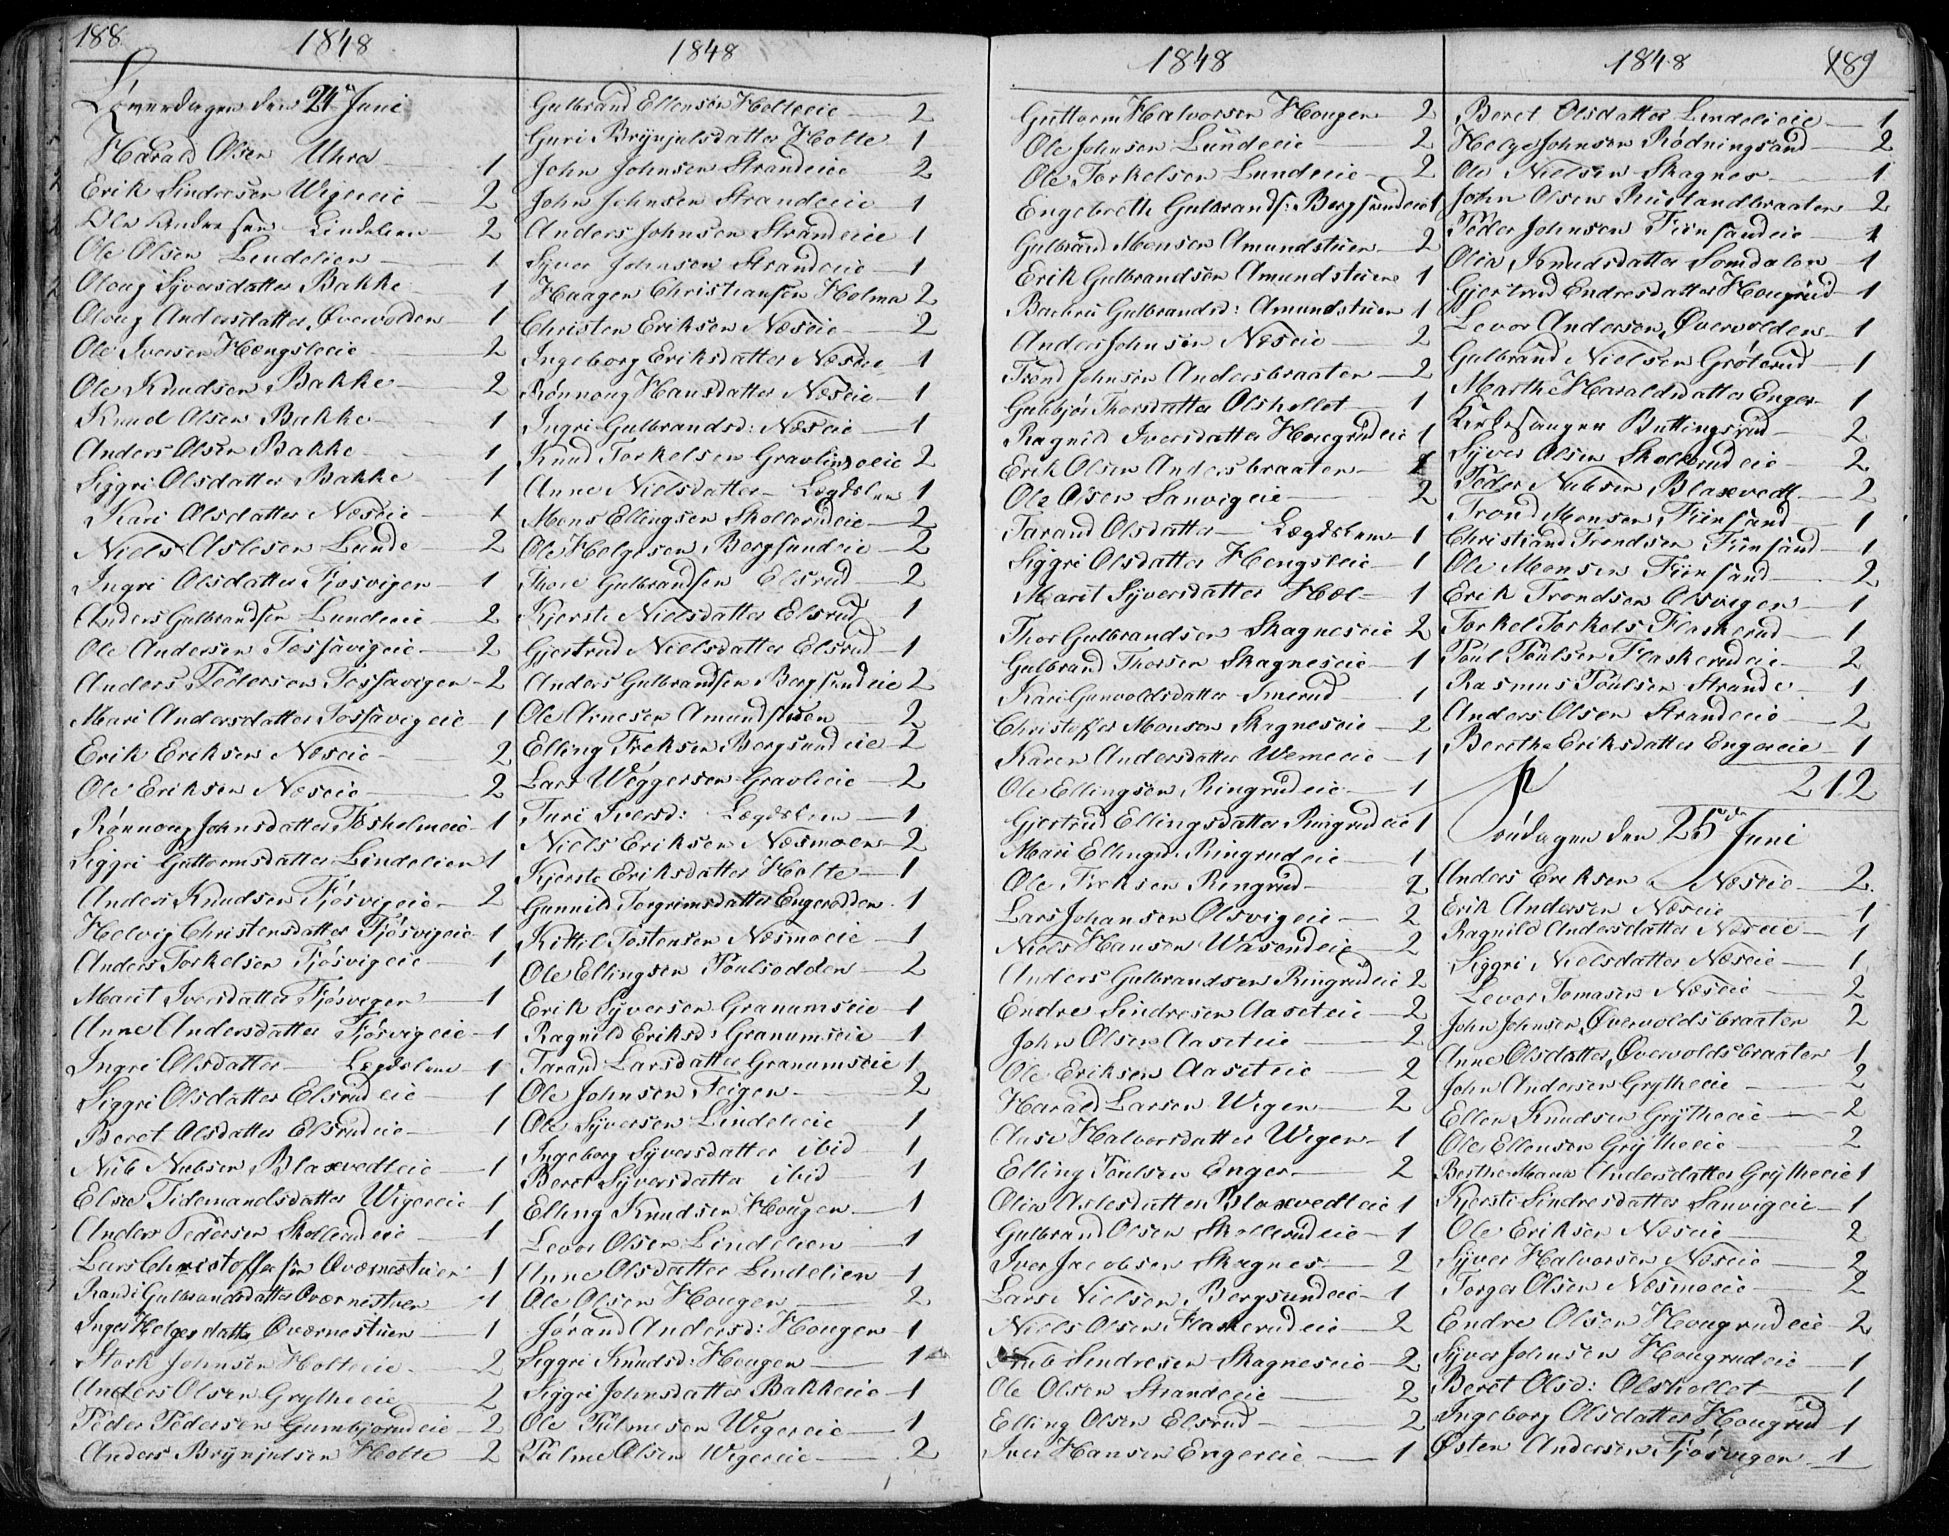 188
1848
Løverdagen den 24 Juni
Harald Olsen Uhra 1
Erik Sindresen Wigereie 2
Ole Andresen Lindelien 2
Ole Olsen Lindelien 1
Oloug Syversdatter Bakke 1
Oloug Andersdatter Øvervolden 1
Ole Iversen Hængsleeie 2
Ole Knudsen Bakke 2
Knud Olsen Bakke 1
Anders Olsen Bakke 1
Siggri Olsdatter Bakke 1
Kari Olsdatter Næseie 1
Niels Aslesen Lunde 2
Ingri Olsdatter Fjøsvigen 1
Anders Gulbrandsen Lundeeie 2
Ole Andersen Fossavigeie 2
Anders Pedersen Fossavigen 2
Mari Andersdatter Fossavigeie 1
Erik Eriksen Næseie 2
Ole Eriksen Næseie 2
Rønnoug Johnsdatter Fosholmeie 1
Siggri Guttormsdatter Lindelien 1
Anders Knudsen Fjøsvigeie 2
Helvig Christensdatter Fjøsvigeie 1
Anders Torkelsen Fjøsvigeie 1
Marit Iversdatter Fjøsvigen 1
Anne Andersdatter Fjøsvigeie 1
Ingri Olsdatter Lægdslem 1
Siggri Olsdatter Elsrudeie 1
Beret Olsdatter Elsrudeie 1
Nub Nubsen Blaxvedteie 1
Elsie Tidemandsdatter Wigereie 1
Anders Pedersen Skollerudeie 1
Lars Christoffersen Oværnestuen 1
Randi Gulbrandsdatter Oværnestuen 1
Inger Helgesdatter Oværnestuen 1
Stork Johnsen Holteeie 2
Anders Olsen Grytheeie 2
Peder Pedersen Gumbjørudeie 2
Anders Brynjulsen Holte 2
1848
Gulbrand Ellensen Holteeie 2
Guri Brynjulsdatter Holte 1
John Johnsen Strandeie 2
John Johnsen Strandeie 1
Anders Johnsen Strandeie 1
Syver Johnsen Strandeie 1
Haagen Christiansen Holma 2
Christen Eriksen Næseie 2
Ingeborg Eriksdatter Næseie 1
Rønnoug Hansdatter Næseie 1
Ingri Gulbrandsd: Næseie 1
Knud Torkelsen Gravlimoeie 2
Anne Nielsdatter Lægdslem 1
Mons Ellingsen Skollerudeie 2
Ole Helgesen Bergsundeie 2
Thore Gulbrandsen Elsrud 2
Kjersti Nielsdatter Elsrud 1
Gjertrud Nielsdatter Elsrud 1
Anders Gulbrandsen Bergsundeie 2
Ole Arnesen Amundstuen 2
Elling Freksen Bergsundeie 2
Lars Wiggersen Gravlieie 2
Turi Iversd: Lægdslem 1
Niels Eriksen Næsmoen 2
Kjersti Eriksdatter Holte 1
Gunnild Torgrimsdatter Engerodden 1
Kittil Tostensen Næsmoeie 1
Ole Ellingsen Poulsodden 2
Erik Syversen Granumseie 1
Ragnild Eriksd: Granumseie 1
Tarand Larsdatter Granumseie 1
Ole Johnsen Teigen 2
Ole Syversen Lindelieie 1
Ingeborg Syversdatter ibid 1
Beret Syversdatter ibid 1
Elling Knudsen Hougen 1
Levor Olsen Lindelien 1
Anne Olsdatter Lindelien 1
Ole Olsen Hougen 2
Jørand Andersd: Hougen 1
Siggri Knudsd: Hougen 1
Siggri Johnsdatter Bakkeeie 1
Ole Palmesen Wigereie 1
Palme Olsen Wigereie 2
1848
Guttorm Halvorsen Hougen 2
Ole Johnsen Lundeeie 2
Ole Torkelsen Lundeeie 2
Engebreth Gulbrands: Bergsundeie 1
Gulbrand Monsen Amundstuen 2
Erik Gulbrandsen Amundstuen 1
Barbru Gulbrandsd: Amundstuen 1
Anders Johnsen Næseie 2
Trond Johnsen Andersbraaten 2
Gubbjør Thorsdatter Olshollet 1
Ragnild Iversdatter Hougrudeie 1
Erik Olsen Andersbraaten 2
Ole Olsen Sanvigeie 2
Tarand Olsdatter Lægdslem 1
Siggri Olsdatter Hengsleie 1
Marit Syversdatter Hæl 1
Thor Gulbrandsen Skagneseie 2
Gulbrand Thorsen Skagneseie 1
Kari Gunvoldsdatter Smerud 1
Christoffer Monsen Skagneseie 2
Karen Andersdatter Wemeeie 1
Ole Ellingsen Ringrudeie 1
Gjertrud Ellingsdatter Ringrudeie 1
Mari Ellingsd: Ringrudeie 1
Ole Freksen Ringrud 2
Lars Johansen Olsvigeie 2
Niels Hansen Wasendeie 2
Anders Gulbrandsen Ringrudeie 2
Endre Sindresen Aaseteie 2
John Olsen Aaseteie 2
Ole Eriksen Aaseteie 2
Harald Larsen Wigen 2
Aase Halvorsdatter Wigen 1
Elling Poulsen Enger 2
Olia Aslesdatter Blaxvedteie 1
Gulbrand Olsen Skollerudeie 1
Iver Jacobsen Skagnes 2
Lars Nielsen Bergsundeie 1
Niels Olsen Flaskerudeie 2
Nub Sindresen Skagneseie 2
Ole Olsen Strandeeie 2
Elling Olsen Elsrud 2
Iver Hansen Engereie 1
1848
189
Beret Olsdatter Lindelieie 1
Helge Johnsen Rødningsand 2
Ole Nielsen Skagnes 1
John Olsen Ruslandbraaten 2
Peder Johnsen Fiinsandeie 1
Olia Knudsdatter Somdalen 1
Gjertrud Endresdatter Hougrud 1
Levor Andersen Øvervolden 1
Gulbrand Nielsen Grøterud 1
Marthe Haraldsdatter Enger 1
Kirkesanger Buttingsrud 2
Syver Olsen Skollerudeie 2
Peder Nubsen Blaxvedt 2
Trond Monsen Fiinsand 1
Christian Trondsen Fiinsand 1
Ole Monsen Fiinsand 2
Erik Trondsen Olsvigen 1
Torkel Torkels: Flaskerud 1
Poul Poulsen Flaskerudeie 2
Rasmus Poulsen Strande 1
Anders Olsen Strandeeie 2
Berethe Eriksdatter Engereie 1
212
Søndagen den 25de Juni
Anders Eriksen Næseie 2
Erik Andersen Næseie 1
Ragnild Andersdatter Næseie 1
Siggri Nielsdatter Næseie 1
Levor Tomasen Næseie 2
John Johnsen Øvervoldsbraaten 2
Anne Olsdatter Øvervoldsbraaten 1
John Andersen Grytheeie 2
Ellen Knudsen Grytheeie 2
Ole Ellensen Grytheeie 2
Berthe Maria Andersdatter Grytheeie 1
Kjersti Sindresdatter Sanvigeie 1
Ole Eriksen Næseie 2
Syver Halvorsen Næseie 2
Torger Olsen Næsmoeie 2
Endre Olsen Hougrudeie 2
Syver Johnsen Hougrudeie 1
Beret Olsd: Olshollet 1
Ingeborg Olsdatter Hougrud 1
Østen Andersen Fjøsvigen 1